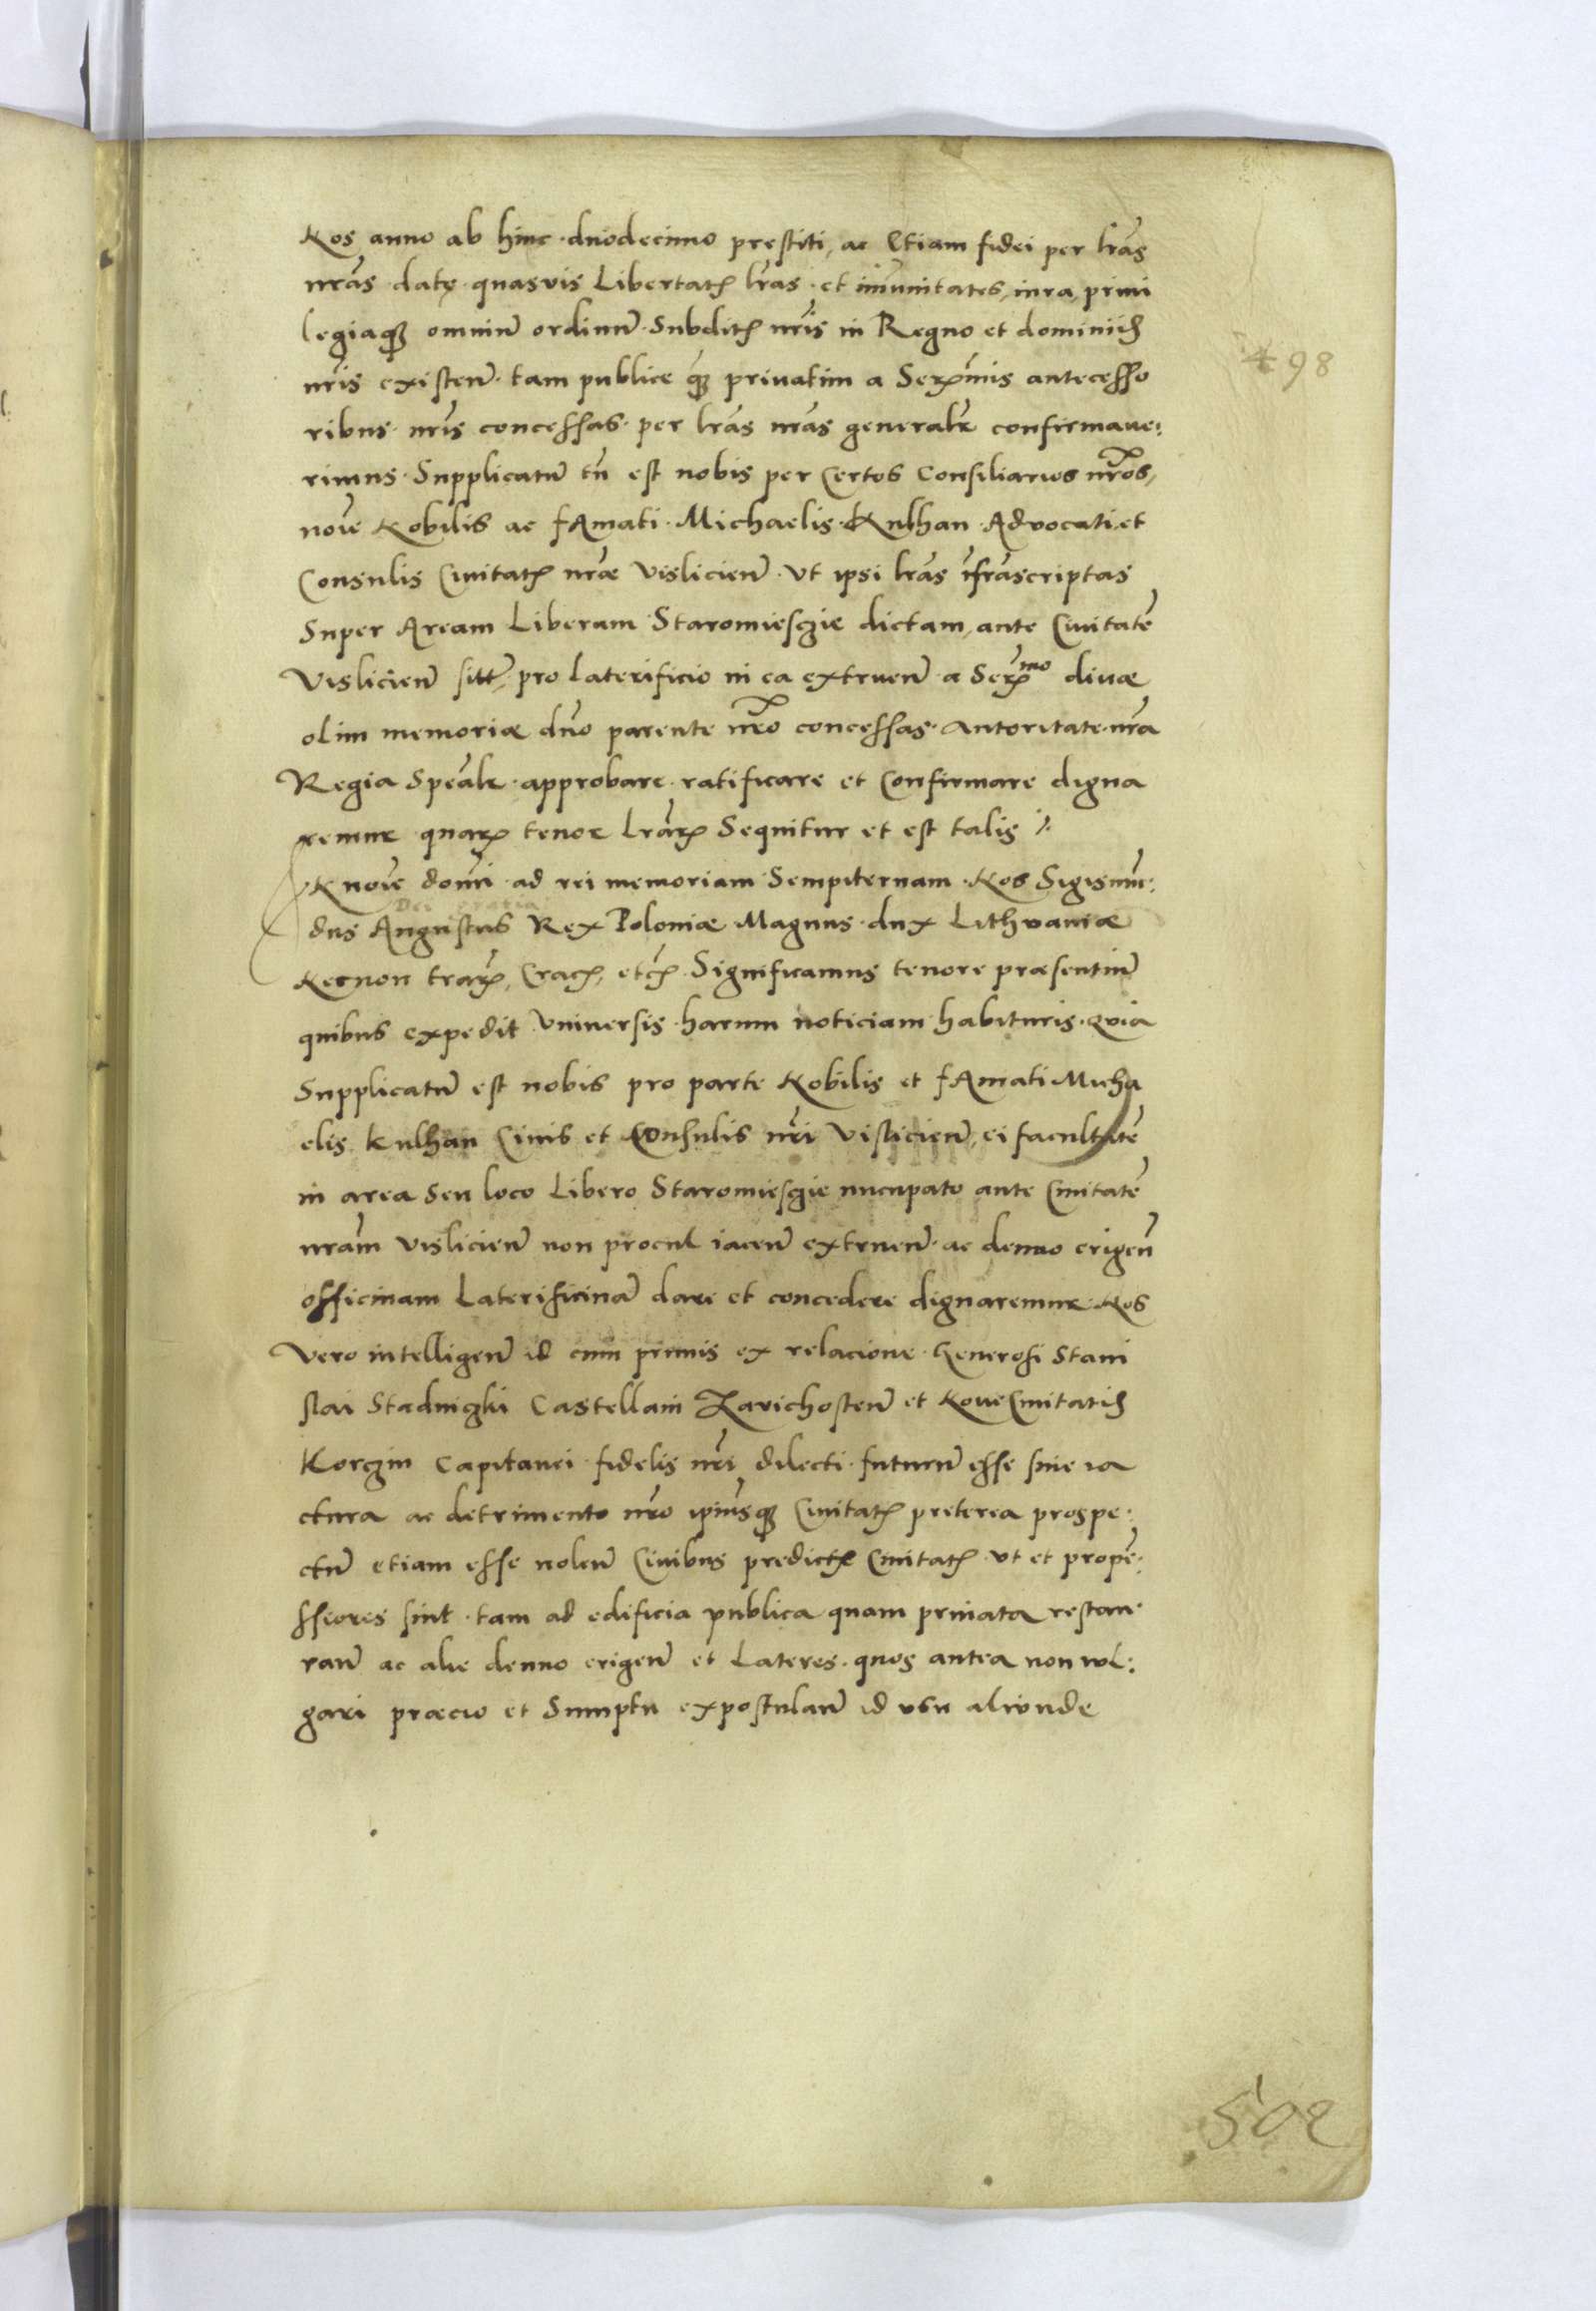 Nos anno ab hinc duodecimo prestiti, ac Etiam fidei per lr̃as
nr̃as datę quasvis Libertatꝭ lr̃as et im̃unitates, iura, privi
legiaqꝫ omniũ ordinũ Subditꝭ nr̃is in Regno et dominiis
nr̃is existeñ tam publice qꝫ privatim a Serꝫm̃is antecesso
ribus nr̃is concessas per lr̃as nr̃as generalr̃ confirmave:
rimus Supplicatũ tñ est nobis per Certos Consiliarios nr̃os,
noĩe Nobilis ac fAmati Michaelis Kulhan Advocati et
Consulis Civitatꝭ nr̃æ Vislicieñ Vt ipsi lr̃as ĩfrascriptas
Super Aream Liberam Staromiesczie dictam, ante Civitatẽ
Vislicieñ sitã, pro laterificio in ea extrueñ a Serꝫm̃o divæ
olim memoriæ dño parente nr̃o concessas Autoritate nr̃a
Regia Spe͂alr̃ approbare ratificare et Confirmare digna
remur quarꝫ tenor lr̃arꝫ Sequitur et est talis
In noĩe domĩ ad rei memoriam Sempiternam Nos Sigismũ:
Dei gratia
dus Augustus Rex Poloniæ Magnus dux Lithvaniæ
Necnon trarꝫ, Cracꝭ, etcꝭ Significamus tenore præsentiũ
quibus expedit Vniversis harum noticiam habituris quia
Supplicatũ est nobis pro parte Nobilis et fAmati Micha
elis Kulhan Civis et Consulis nr̃i Vislicieñ, ei facultatẽ
in area seu loco Libero Staromiesczie nucupato ante Civitatẽ
nr̃am Vislicieñ non procul iaceñ extrueñ ac denuo erigeñ
officinam Laterificinã dare et concedere dignaremur Nos
Vero intelligeñ id cum primis ex relacione Generosi Stani
slai Stadniczki Castellani Zavichosteñ et Nove Civitatis
Korczin Capitanei fidelis nr̃i dilecti futurũ esse sine ia
ctura ac detrimento nr̃o ipiusqꝫ Civitatꝭ preterea prospe:
ctũ etiam esse voleñ Civibus predictę Civitatꝭ vt et propẽ:
ssiores sint tam ad edificia publica quam privata restau
rañ ac alie denuo erigeñ et Lateres quos antea non vol:
gari præcio et Sumptu expostulañ id vsu aliunde
498
502